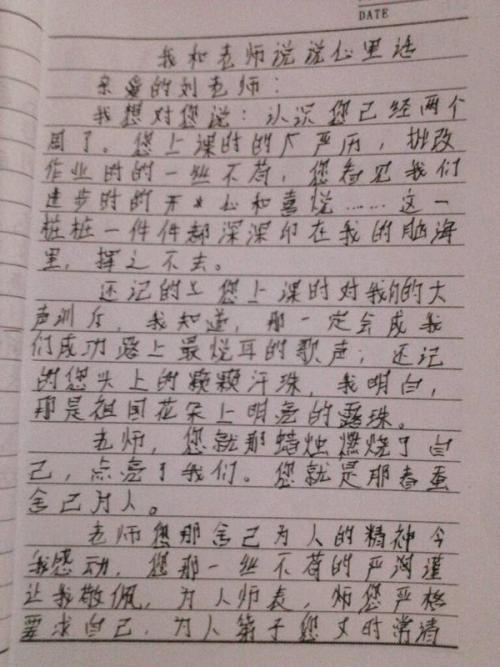 DATE
我和老师说说心里话
亲爱的刘老师：
我想对您说：认识您已经两个
周了。您上课时的厂严厉，批改
作业时的一丝不苟，您看见我们
进步时的开心和喜悦……这一
桩桩一件件都深深印在我的脑海
里，挥之不去。
还记的您上课时对我们的大
声训斥，我知道，那一定会成我
们成功路上最悦耳的歌声；还记
的您头上的颗颗汗珠，我明白，
那是祖国花朵上明亮的露珠。
老师，您就那蜡烛燃烧了自
己，点亮了我们。您就是那春蚕
舍己为人。
老师您那舍己为人的精神令
我感动，您那一丝不苟的严谨
让我敬佩，为人师表，师您严格
要求自己，为人第子您又时常清